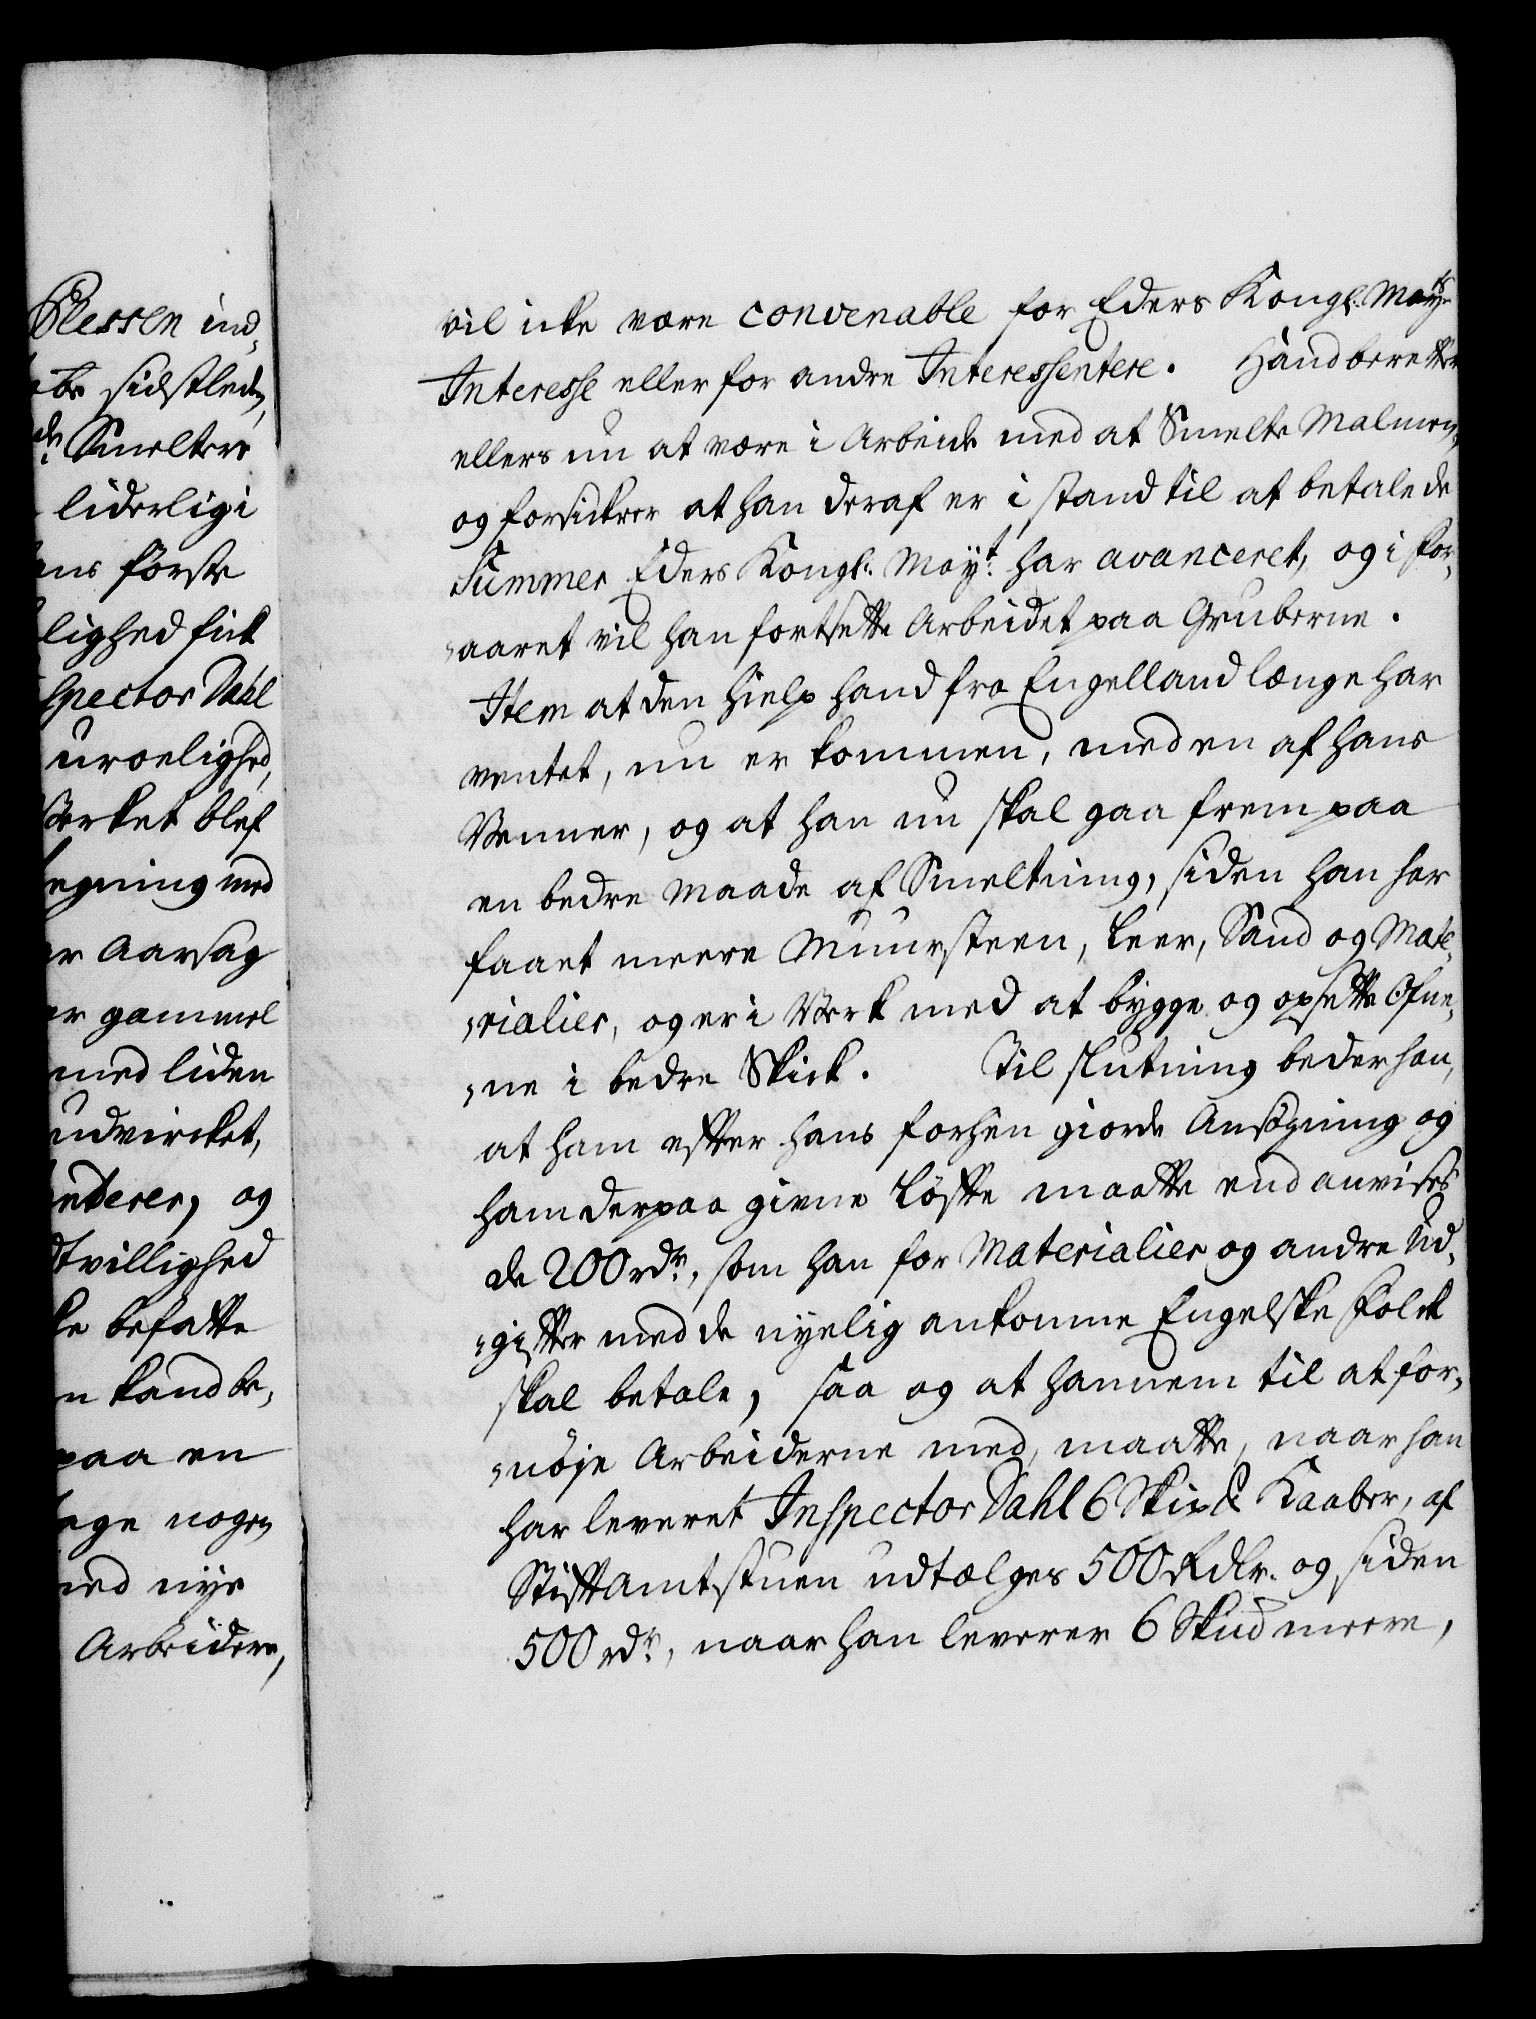 Plessen ind,
be sidstleden,
de Smeltere
liderlig i
ens første
lighed fick
spector Dahl
uroelighed,
Verket blef
egning med
er Aarsag
er gammel
med liden
udvircket,
enderer, og
dtvillighed
ke befatte
n kand be,
paa en
tage nogen
med nye
Arbeidere,
vil icke være convenable for Eders Kongl. Mayts
Interesse eller for andre Interessentere. Hand beretter
ellers nu at være i Arbeide med at Smelte Malmen,
og forsickrer at han deraf er i stand til at betale de
Summer Eders Kongl: Mayt: har avanceret, og i For,
,aaret vil han fortsette Arbeidet paa Gruberne.
Item at den Hielp hand fra Engelland længe har
ventet, nu er kommen, med en af hans
Venner, og at han nu skal gaa frem paa
en bedre Maade af Smeltning, siden han har
faaet meere Muursteen, Leer, Sand og Mate,
,rialier, og er i Verk med at bygge og opsette Ofne,
,ne i bedre Skick. Til slutning beder han,
at ham efter hans forhen giorde Ansøgning og
ham derpaa givne Løfte maatte end anvises
de 200 rdr., som han for Materialier og andre Ud,
,gifter med de nyelig ankomne Engelske Folck
skal betale, saa og at hannem til at for,
,nøje Arbeiderne med, maatte, naar han
har leveret Inspector Dahl 6 Skipd Kaaber, af
Stiftamtstuen udtælges 500 Rdlr. og siden
500 rdr., naar han leverer 6 Skud meere,